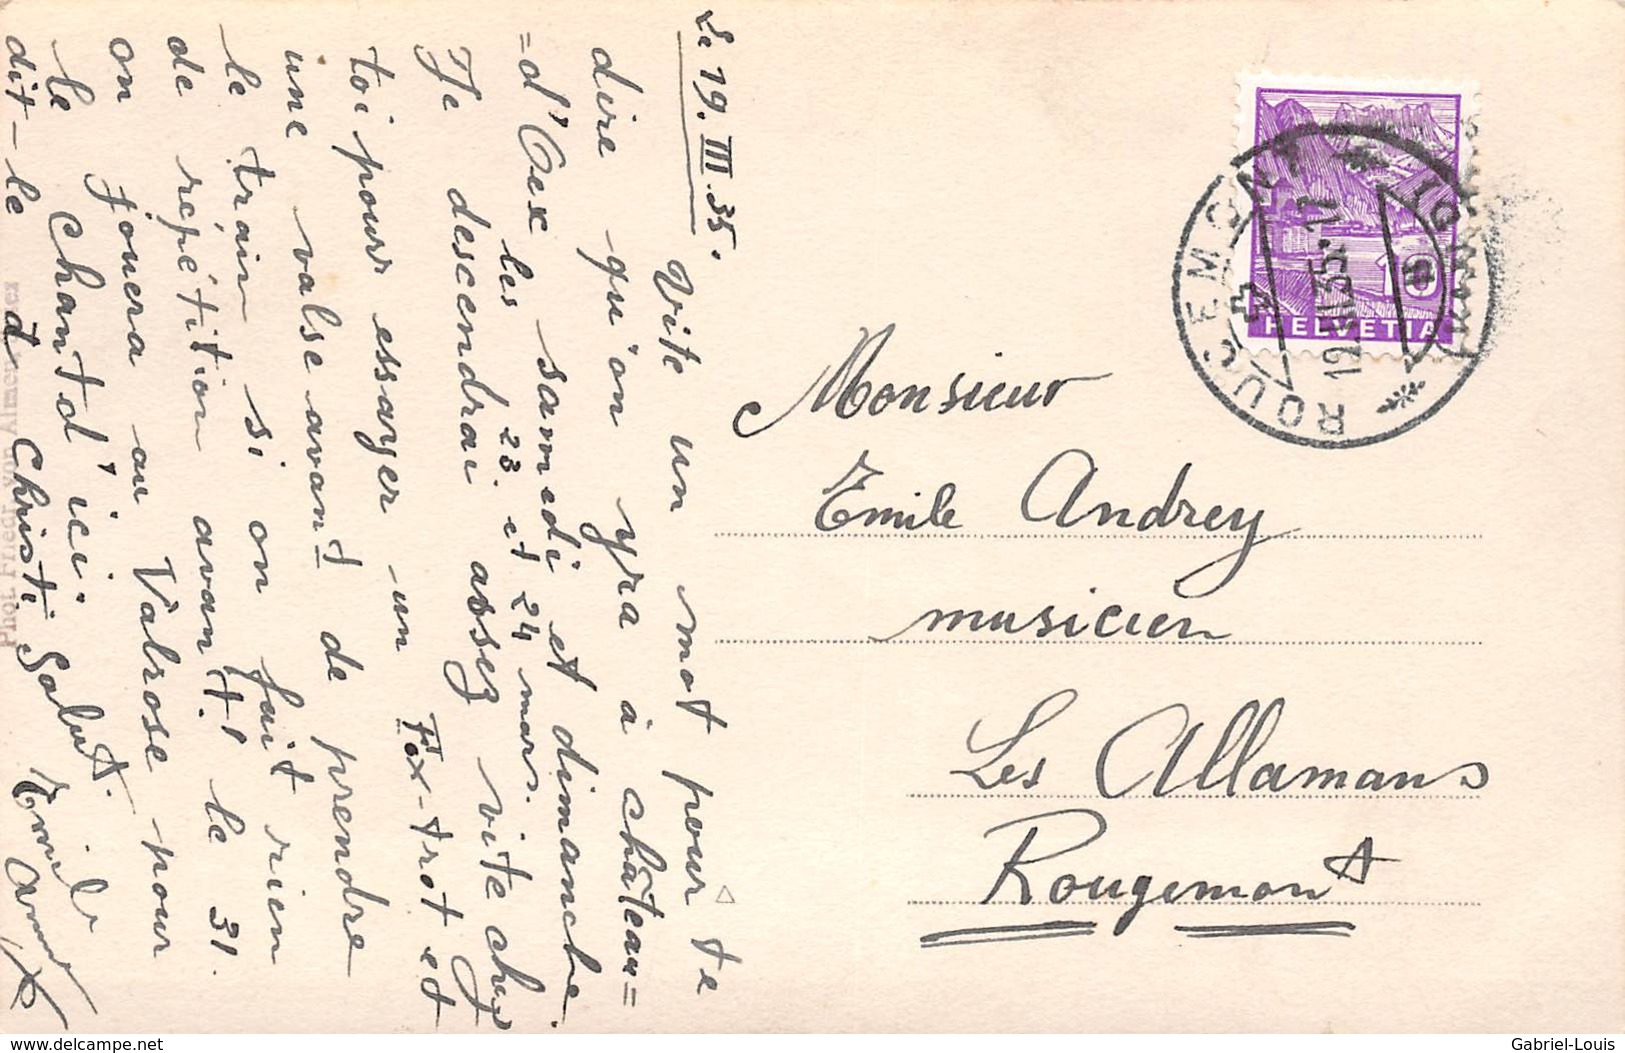 Le 19.III.35.
Vite un mot pour te
dire qu'on yra à château=
=d'Oex samedi et dimanche
les 23. et 24 mars.
Je descendrai assez vite chez
toi pour essayer un Fox-trot et
une valse avant de prendre
le train si on fait rien
de repétition avant. le 31.
on jouera au Valrose pour
le chant d'ici.
dit-le à Christi Salut.
Emile
Phot. Friedr. von Almen
HELVETIA
10
ROUGEMONT
19.III.35.
Monsieur
Emile Andrey
musicien
Les Allamans
Rougemont
delcampe.net
Gabriel-Louis